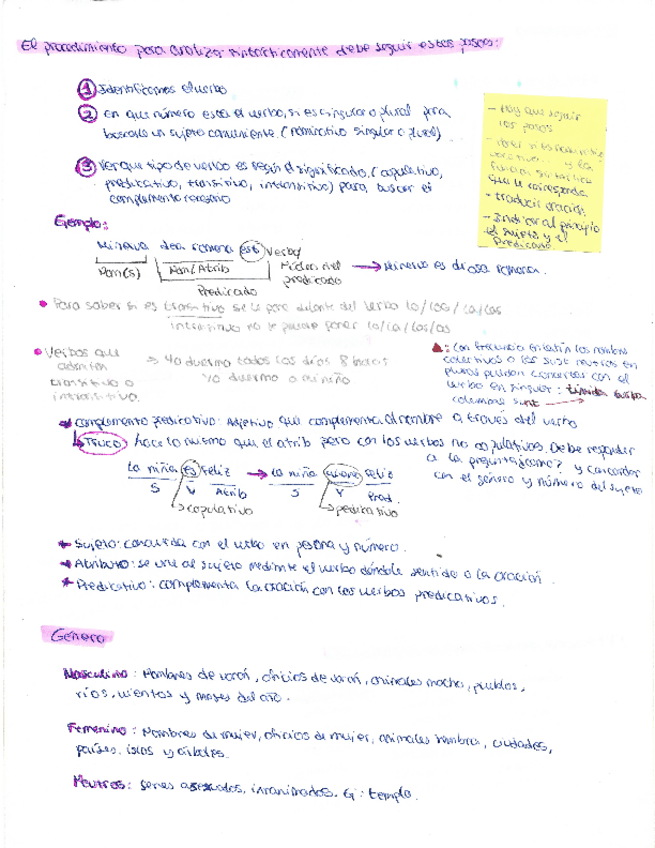 El procedimiento para analizar sintácticamente debe seguir estos pasos:
1 Identificamos el verbo
2 en que número está el verbo, si es singular o plural para
buscarle un sujeto conveniente. (nominativo singular o plural)
3 Ver que tipo de verbo es según el significado. (copulativo,
predicativo, transitivo, intransitivo) para buscar el
complemento necesario
- Hay que seguir
los pasos
función sintáctica
que le corresponda
- traducir oración
- Indicar al principio
el sujeto y el
Predicado
Ejemplo:
Minerva dea romana est Verbo
Nom(s) Nom/Atrib Núcleo del predicado → Minerva es diosa romana.
Predicado
Para saber si es transitivo se le pone delante del verbo lo/los/la/las
intransitivo no se puede poner lo/la/los/las
Verbos que
admiten
transitivo o
intransitivo.
→ Yo duermo todos los días 8 horas
Yo duermo a mi niño
: Con frecuencia en latín los nombres
colectivos o los sust neutros en
plural pueden concertar con el
verbo en singular: turba
sunt
complemento predicativo: Adjetivo que complementa al nombre a través del verbo
TRUCO hace lo mismo que el atrib pero con los verbos no copulativos. Debe responder
a la pregunta ¿como? y concordar
con el género y número del sujeto
la niña es feliz → la niña feliz
S V Atrib S V Pred.
→ copulativo → predicativo
Sujeto: concuerda con el verbo en persona y número.
Atributo: se une al sujeto mediante el verbo dándole sentido a la oración.
Predicativo: complementa la oración con los verbos predicativos.
Género
Masculino: Nombres de varón, oficios de varón, animales macho, pueblos,
ríos, vientos y meses del año.
Femenino: Nombres de mujer, oficios de mujer, animales hembras, ciudades,
países, islas y árboles.
Neutros: seres asexuados, inanimados. Ej: templo.